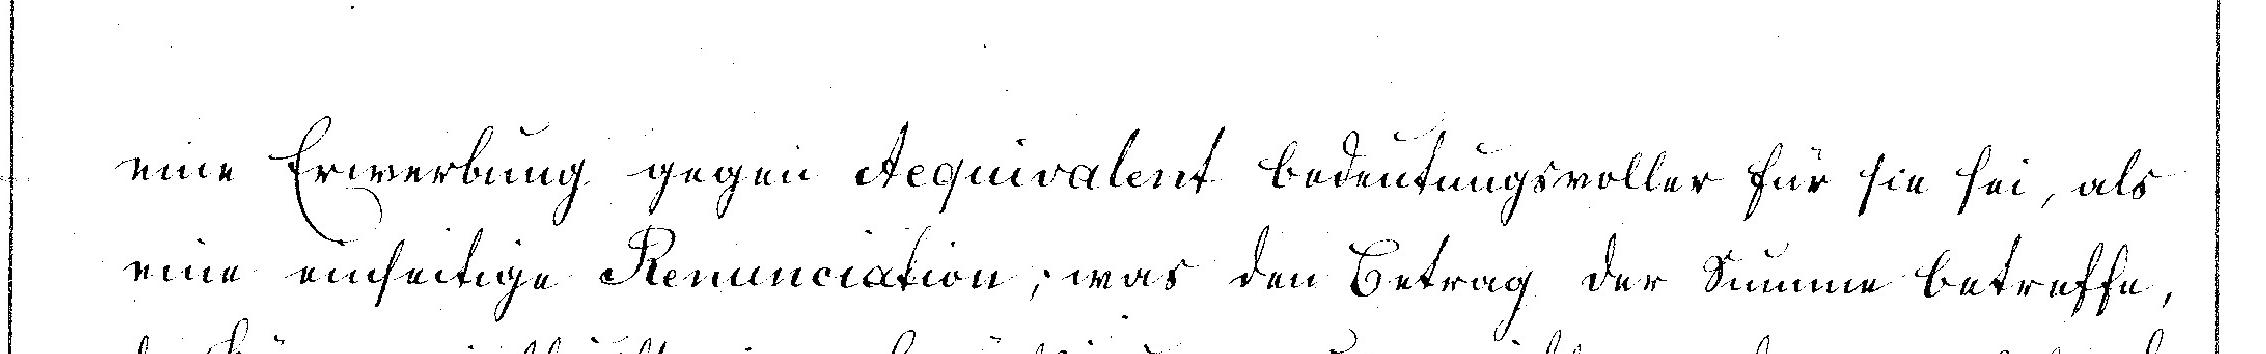 eine Erwerbung gegen Aequivalent bedeutungsvoller für sie sei, als
eine einseitige Renunciation; was den Betrag der Summe betreffe,